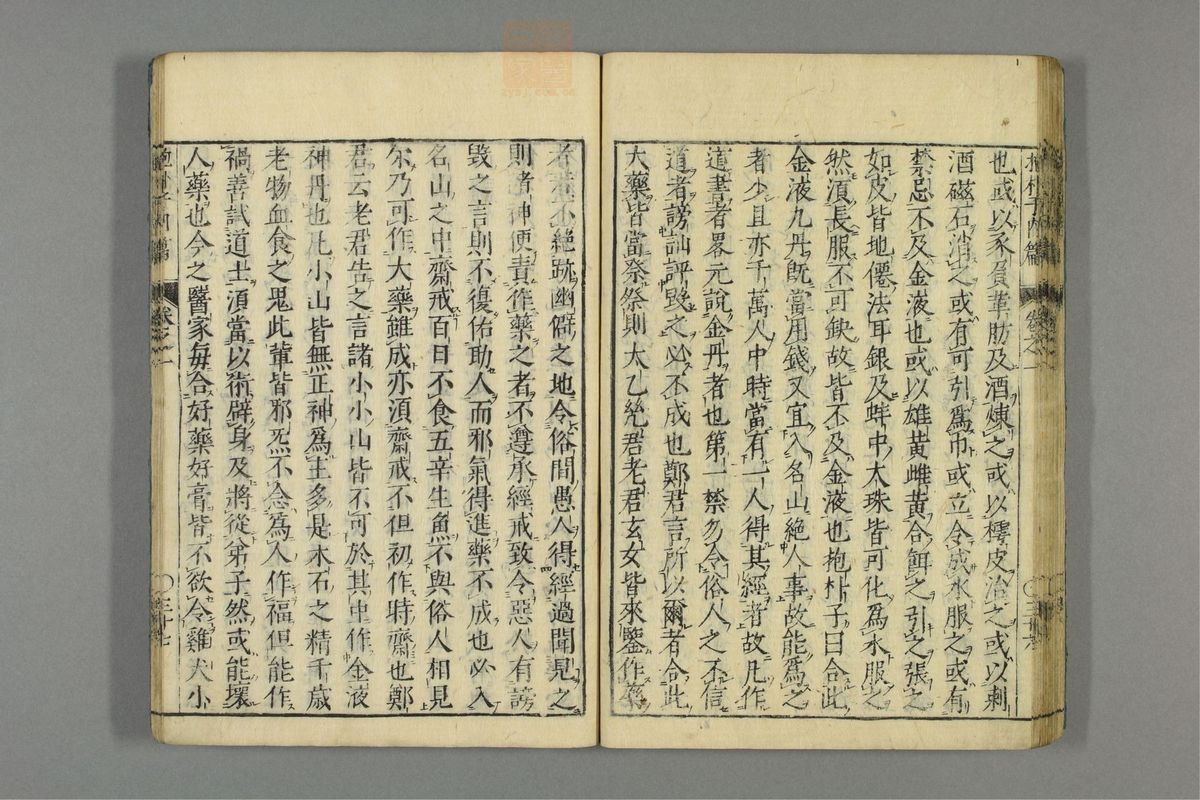 也或以豕負革肪及酒煉之或以樗皮治之或以荆
酒磁石消之或有可引爲巾或立令成水服之或有
禁忌不及金液也或以雄黄雌黄合餌之引之張之
如皮皆地僊法耳銀及蚌中大珠皆可化爲水服之
然湏長服不可鈌故皆不及金液也抱朴子曰合此
金液九丹既當用錢又宜入名山絶人事故能爲之
者少且亦千萬人中時當有一人得其經者故凡作
道書者畧元說金丹者也第一禁勿令俗人之不信
道者謗訕評毀之必不成也鄭君言所以爾者合此
大藥皆當祭祭則太乙元君老君玄女皆來鑒作藥
者若不絶跡幽僻之地令俗間愚人得經過聞見之
則諸神便責作藥之者不遵承經戒致令惡人有謗
毀之言則不復佑助人而邪氣得進藥不成也必入
名山之中齋戒百日不食五辛生魚不與俗人相見
尔乃可作大藥雖成亦湏齋戒不但初作時齋也鄭
君云老君告之言諸小小山皆不可於其中作金液
神丹也凡小山皆無正神爲主多是木石之精千歲
老物血食之鬼此輩皆邪炁不念爲人作福但能作
禍善試道士湏當以術辟身及將從弟子然或能壞
人藥也今之醫家每合好藥好膏皆不欲令雞犬小
抱朴子内篇
卷之一